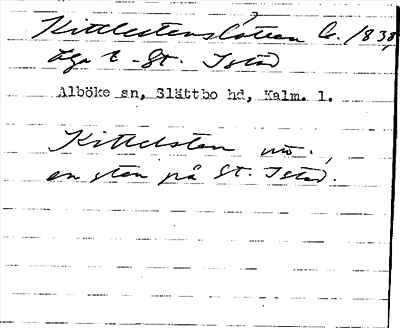 Kittelstenslåtten Lc. 1838,
äga t. St. Istad
Alböke sn, Slättbo hd, Kalm. l.
Kittelsten nö.,
en sten på St. Istad.